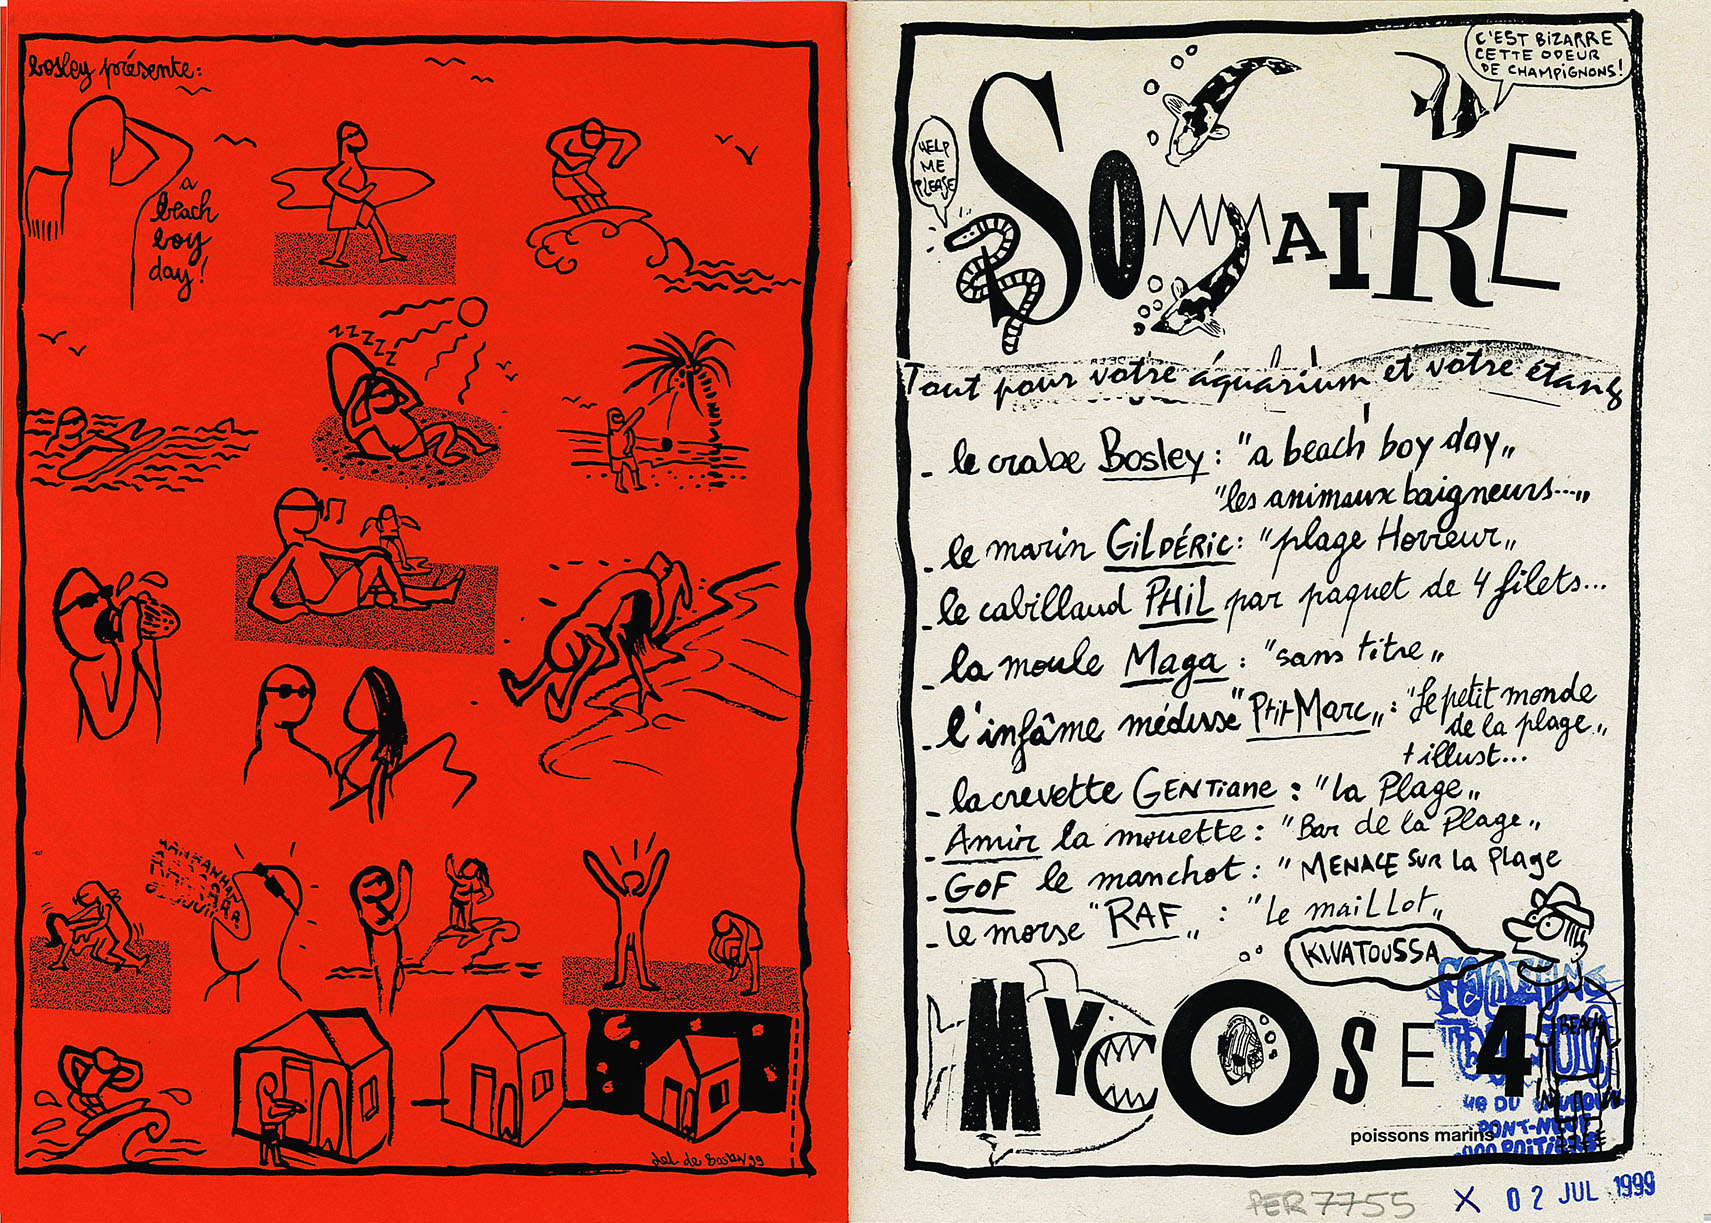 bosley présente:
a
beach
boy
day!
ZZZZZZ
del de Bosley 99
C'EST BIZARRE
CETTE ODEUR
DE CHAMPIGNONS!
HELP
ME
PLEASE
SOMMAIRE
Tout pour votre aquarium et votre étang
- le crabe Bosley: "a beach boy day„
"les animaux baigneurs...„
- le marin GiLDÉRiC: "plage Horreur„
- le cabillaud PHiL par paquet de 4 filets...
- la moule Maga : "sans titre„
- l'infâme méduse "Ptit Marc„ : "Le petit monde
de la plage„
+ illust...
- la crevette GENTiane : "La Plage„
- Amir la mouette : "Bar de la Plage„
- GOF le manchot : "MENACE SUR La Plage
- Le morse "RAF„ : "Le maiLLot„
KWATOUSSA
MYCOSE 4
BEACH
poissons marins
PONT-NEUF
PER 7755 X 02 JUL 1999